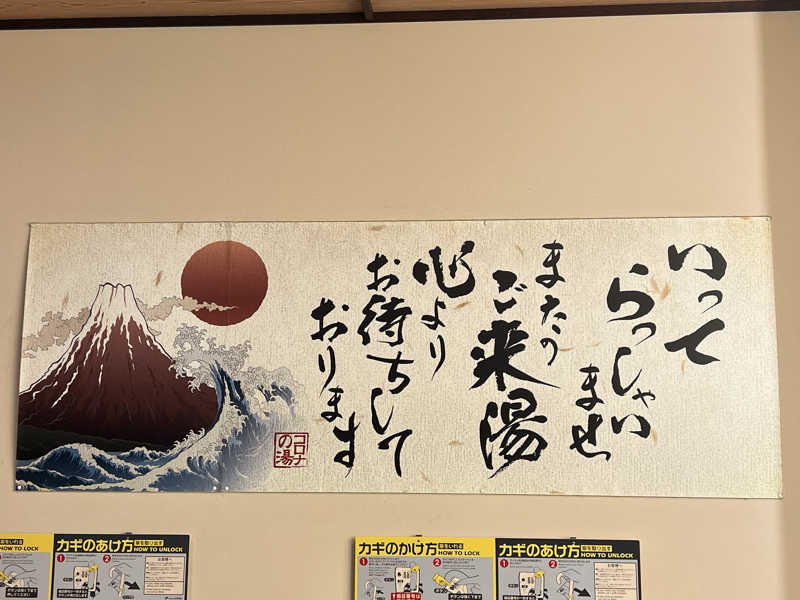 いって
らっしゃい
ませ
またの
ご来湯
心より
お待ちして
おります
コロナ
の湯
HOW TO LOCK
カギのあけ方 鍵を取り出す
HOW TO UNLOCK
カギのかけ方 鍵をいれる
HOW TO LOCK
カギのあけ方 鍵を取り出す
HOW TO UNLOCK